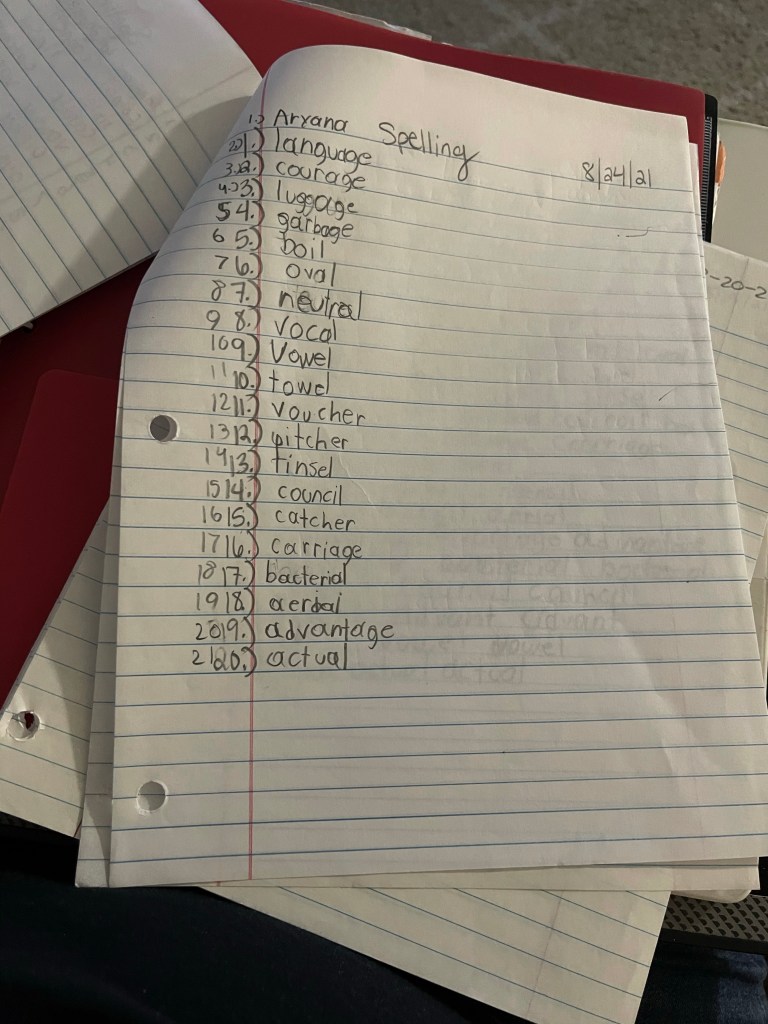 1.) Aryana Spelling 8/24/21
2 1.) language
3 2.) courage
4 3.) luggage
5 4.) garbage
6 5.) boil
7 6.) oval
8 7.) neutral
9 8.) vocal
10 9.) Vowel
11 10.) towel
12 11.) voucher
13 12.) pitcher
14 13.) tinsel
15 14.) council
16 15.) catcher
17 16.) carriage
18 17.) bacterial
19 18.)
20 19.) advantage
21 20.) actual
-20-2